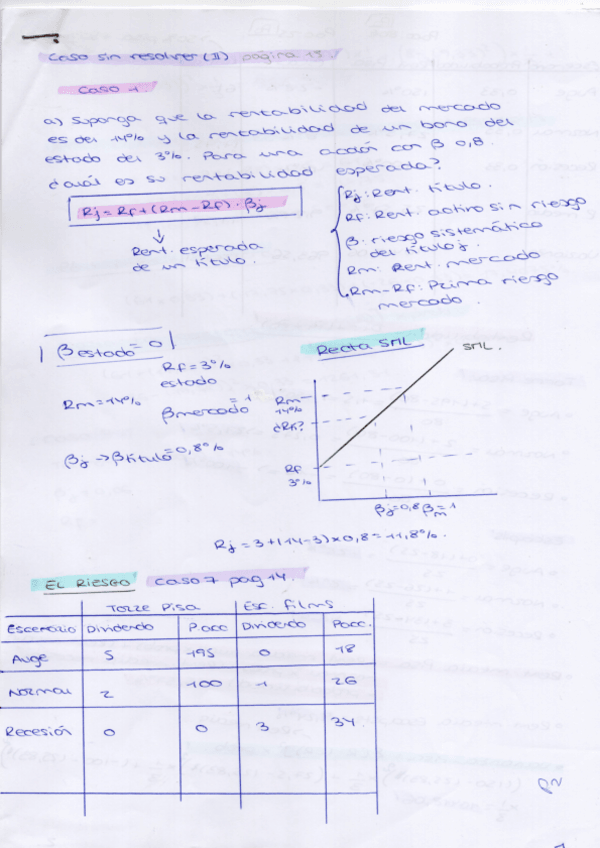 Caso sin resolver (II) página 13.
Caso 1.
a) Suponga que la rentabilidad del mercado
es del 14% y la rentabilidad de un bono del
estado del 3%. Para una acción con β 0,8.
¿cuál es su rentabilidad esperada?
Rj = Rf + (Rm - Rf) · βj
Rent. esperada
de un título.
Rj: Rent. título.
Rf: Rent. activo sin riesgo
β: riesgo sistemático
del título j.
Rm: Rent. mercado
Rm-Rf: Prima riesgo
mercado.
β estado = 0
Rf = 3%
estado
Rm = 14%
β mercado = 1
βj → β título = 0,8%
Recta SML
SML.
Rm
14%
¿Rk?
Rf
3%
βj=0,8 βm = 1
Rj = 3+(14-3)x0,8 = 11,8%.
EL RIESGO caso 7 pag 14.
Torre Pisa Esc. Films
Escenario Dividendo P.acc Dividendo P.acc.
Auge 5 195 0 18
Normal 2 100 1 26
Recesión 0 0 3 34.